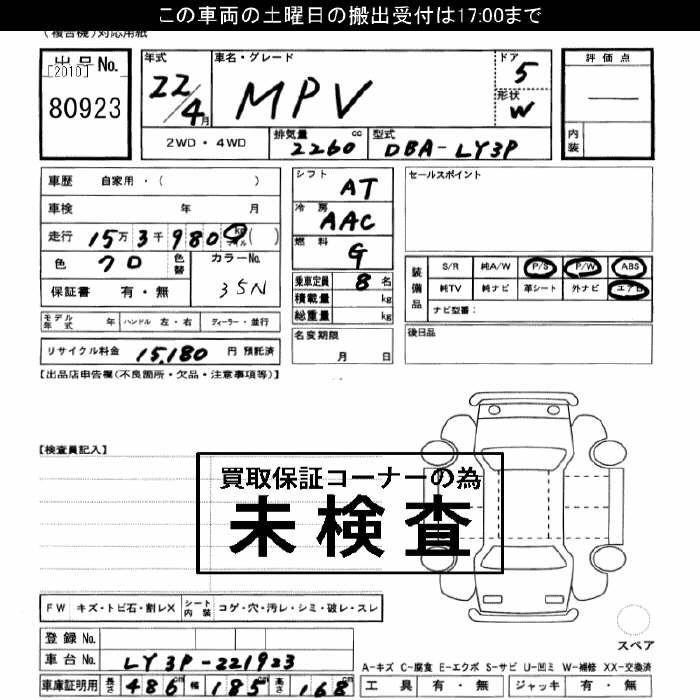 この車両の土曜日の搬出受付は17:00まで
(複合機)対応用紙
出品No.
[2010]
80923
年式
22/4月
車名・グレード
MPV
ドア
5
形状
W
評価点
—
内装
2WD・4WD
排気量 cc
2260
型式
DBA-LY3P
車歴 自家用・( )
車検 年 月
走行 15万3千980 km マイル ( )
色 クロ
色替
カラーNo.
35N
保証書 有・無
シフト
AT
冷房
AAC
燃料
G
乗車定員 8 名
積載量 kg
総重量 kg
セールスポイント
装備品
S/R 純A/W P/S P/W ABS
純TV 純ナビ 革シート 外ナビ エアB
ナビ型番:
モデル年式 年 ハンドル 左・右 ディーラー・並行
リサイクル料金 15,180 円 預託済
名変期限
月 日
後日品
【出品店申告欄(不良箇所・欠品・注意事項等)】
【検査員記入】
買取保証コーナーの為
未検査
FW キズ・トビ石・割レX
シート内装 コゲ・穴・汚レ・シミ・破レ・スレ
登録No.
車台No. LY3P-221923
車庫証明用 長さ 486 cm 幅 185 cm 高さ 168 cm
スペア
A-キズ C-腐食 E-エクボ S-サビ U-凹ミ W-補修 XX-交換済
工具 有・無 ジャッキ 有・無